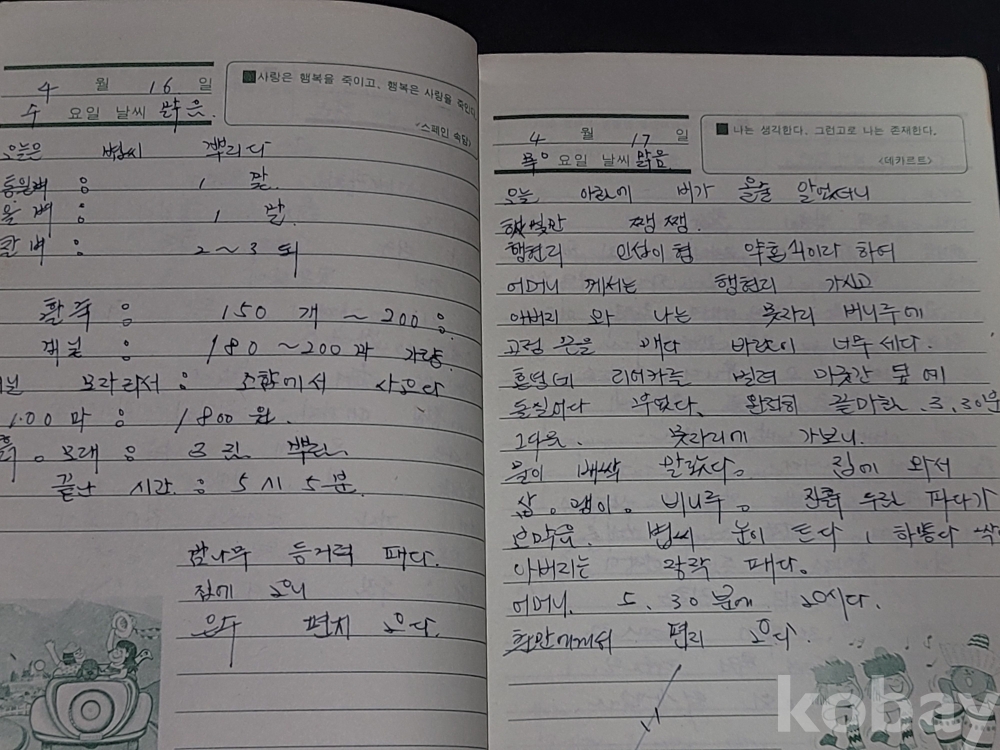 4 월 16 일
수 요일 날씨 맑음.
사랑은 행복을 죽이고, 행복은 사랑을 죽인다.
<스페인 속담>
오늘은 볍씨 뿌리다
통일벼 : 1 말.
올벼 : 1 말.
찰벼 : 2~3 되
활죽 : 150 개 ~ 200 응.
비닐 : 180 ~ 200 가량.
보라리서 : 소향에서 사오다
100 마 : 1800 원.
흙. 모래 : 3 뿌림.
끝난 시간 : 5시 5분.
감나무 등거력 패다.
집에 오니
은수 편지 오다.
4 월 17 일
목 요일 날씨 맑음.
나는 생각한다. 그런고로 나는 존재한다.
<데카르트>
오늘 아침에 비가 올줄 알았더니
햇빛만 쨍쨍.
행현리 인섭이 형 약혼식이라 하여
어머니 께서는 행현리 가시고
아버리 와 나는 못자리 비니루에
고정 끈을 매다 바람이 너무 세다.
리어카를 빌려 마굿간 뒤에
돌실어다 부었다. 완전히 끝마침. 3.30분
그다음. 못자리에 가보니.
물이 바싹 말랐다. 집에 와서
삽. 비니루. 진흙 파다가
막음. 볍씨 눈이 튼다,
아버리는 장작 패다.
어머니. 5.30분에 오시다.
편리 오다.
kobay